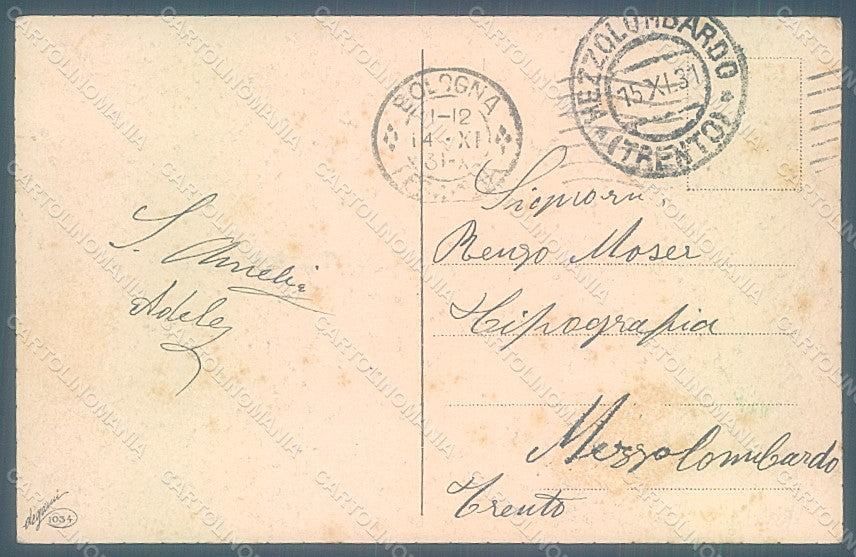 S. Amelia
Adele
degami
1034
BOLOGNA
11-12
14 · XI
MEZZOLOMBARDO
15 XI.31
(TRENTO)
Signora
Renzo Moser
Tipografia
Mezzolombardo
Trento
CARTOLINOMANIA